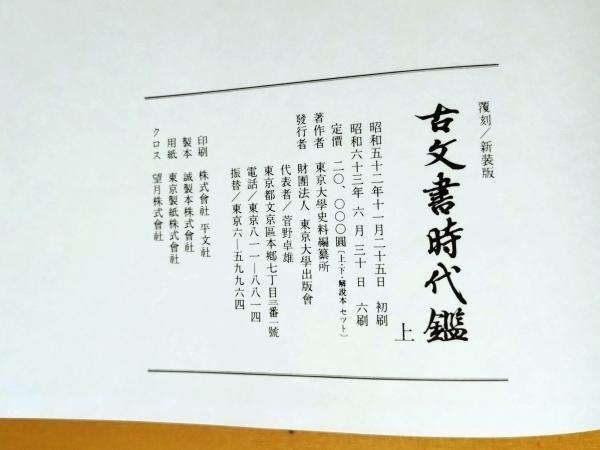 覆刻／新装版
古文書時代鑑
上
昭和五十二年十一月二十五日　初刷
昭和六十三年 六 月 三十 日　六刷
定價　二〇、〇〇〇圓〔上・下・解説本 セット〕
著作者　東京大學史料編纂所
發行者　財團法人 東京大學出版會
代表者／菅野卓雄
東京都文京區本郷七丁目三番一號
電話／東京八一一―八八一四
振替／東京六―五九九六四
印刷　株式會社 平文社
製本　誠製本株式會社
用紙　東京製紙株式會社
クロス　望月株式會社